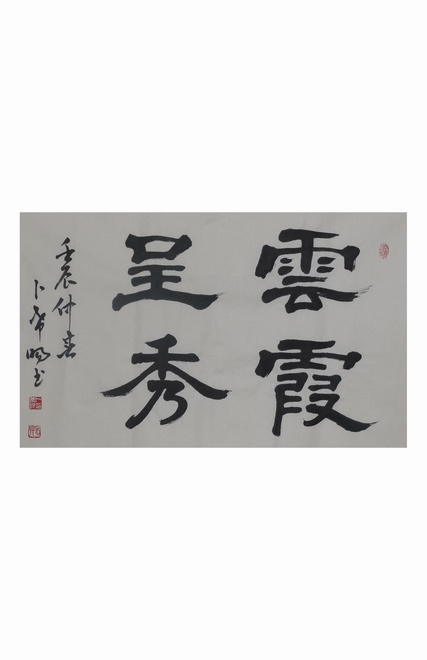 雲霞
呈秀
壬辰仲春
卜希暘书